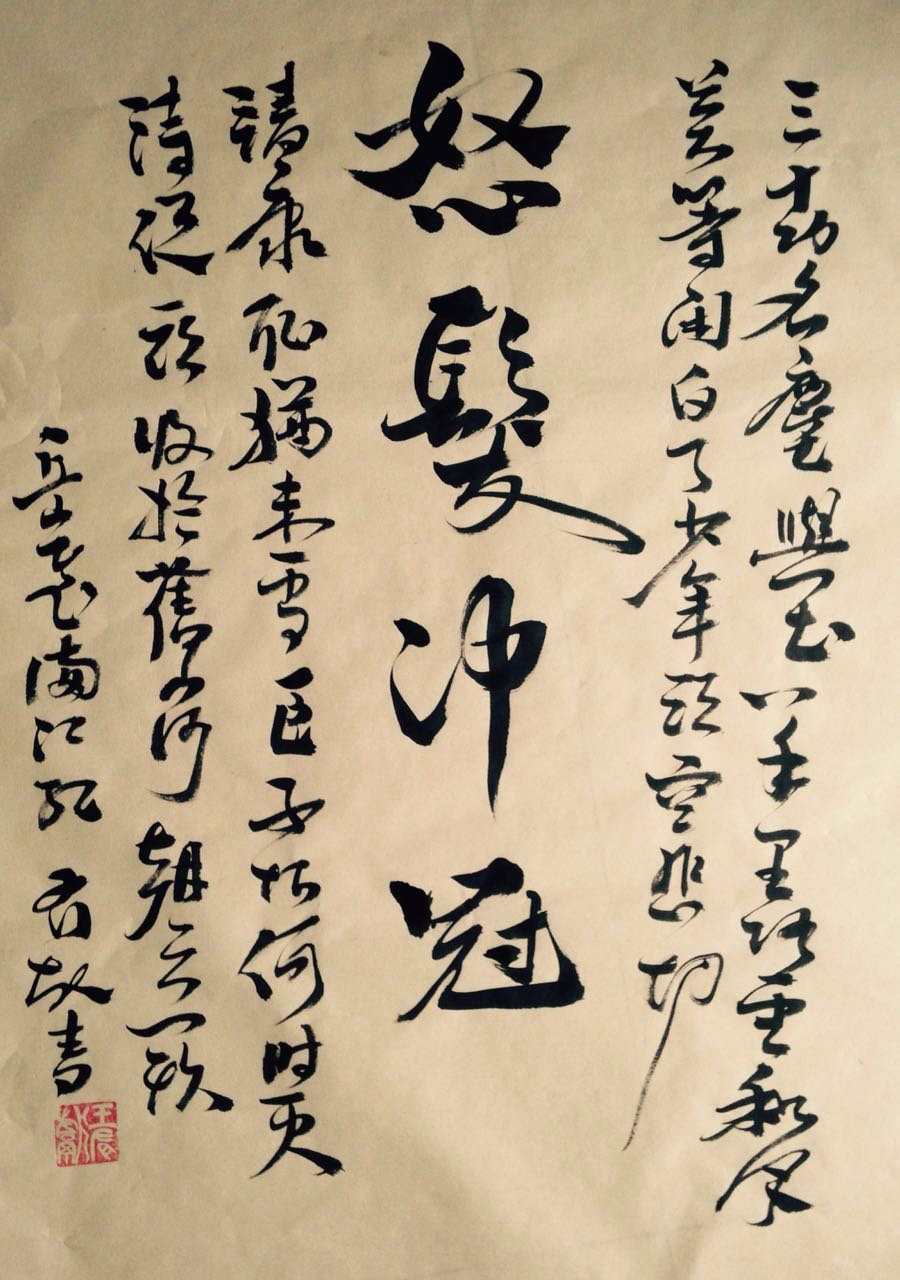 三十功名塵與土八千里路雲和月
莫等闲白了少年頭空悲切
怒髮冲冠
靖康耻猶未雪臣子恨何时灭
待從頭收拾舊山河朝天闕
岳 滿江紅 書